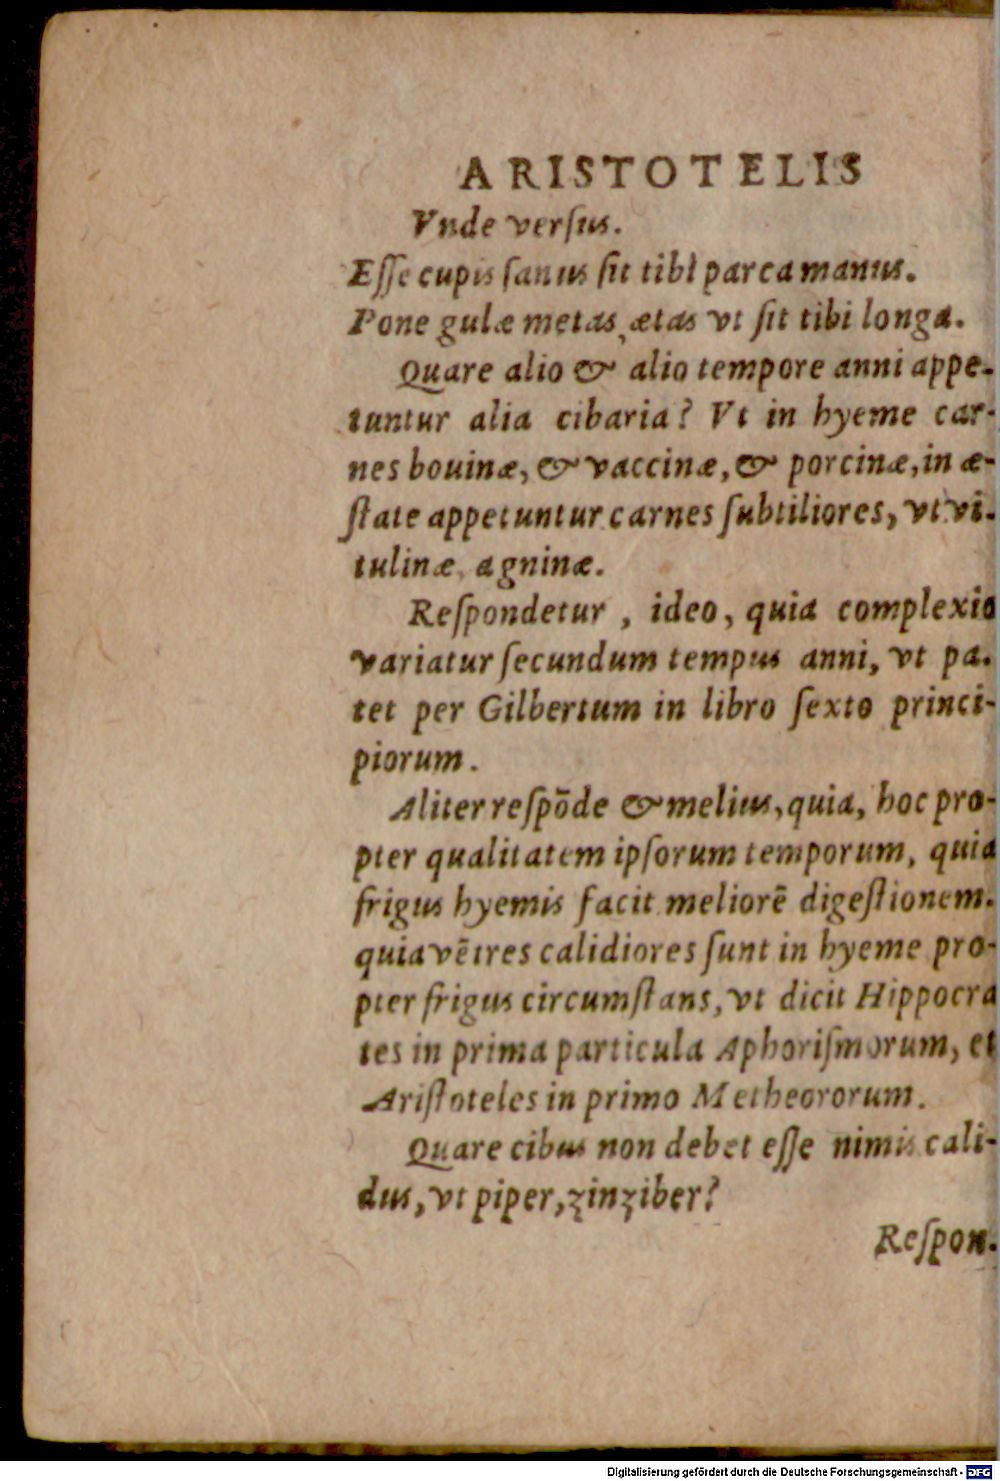 ARISTOTELIS
Vnde verſus.
Eſſe cupis ſanus ſit tibi parca manus.
Pone gulæ metas, ætas vt ſit tibi longa.
Quare alio & alio tempore anni appe-
tuntur alia cibaria? Vt in hyeme car-
nes bouinæ, & vaccinæ, & porcinæ, in æ-
ſtate appetuntur carnes ſubtiliores, vt vi-
tulinæ agninæ.
Reſpondetur, ideo, quia complexio
variatur ſecundum tempus anni, vt pa-
tet per Gilbertum in libro ſexto princi-
piorum.
Aliter reſpōde & melius, quia, hoc pro-
pter qualitatem ipſorum temporum, quia
frigus hyemis facit meliorē digeſtionem.
quia vētres calidiores ſunt in hyeme pro-
pter frigus circumſtans, vt dicit Hippocra
tes in prima particula Aphoriſmorum, et
Ariſtoteles in primo Metheororum.
Quare cibus non debet eſſe nimis cali-
dus, vt piper, zinziber?
Reſpon.
Digitalisierung gefördert durch die Deutsche Forschungsgemeinschaft - DFG